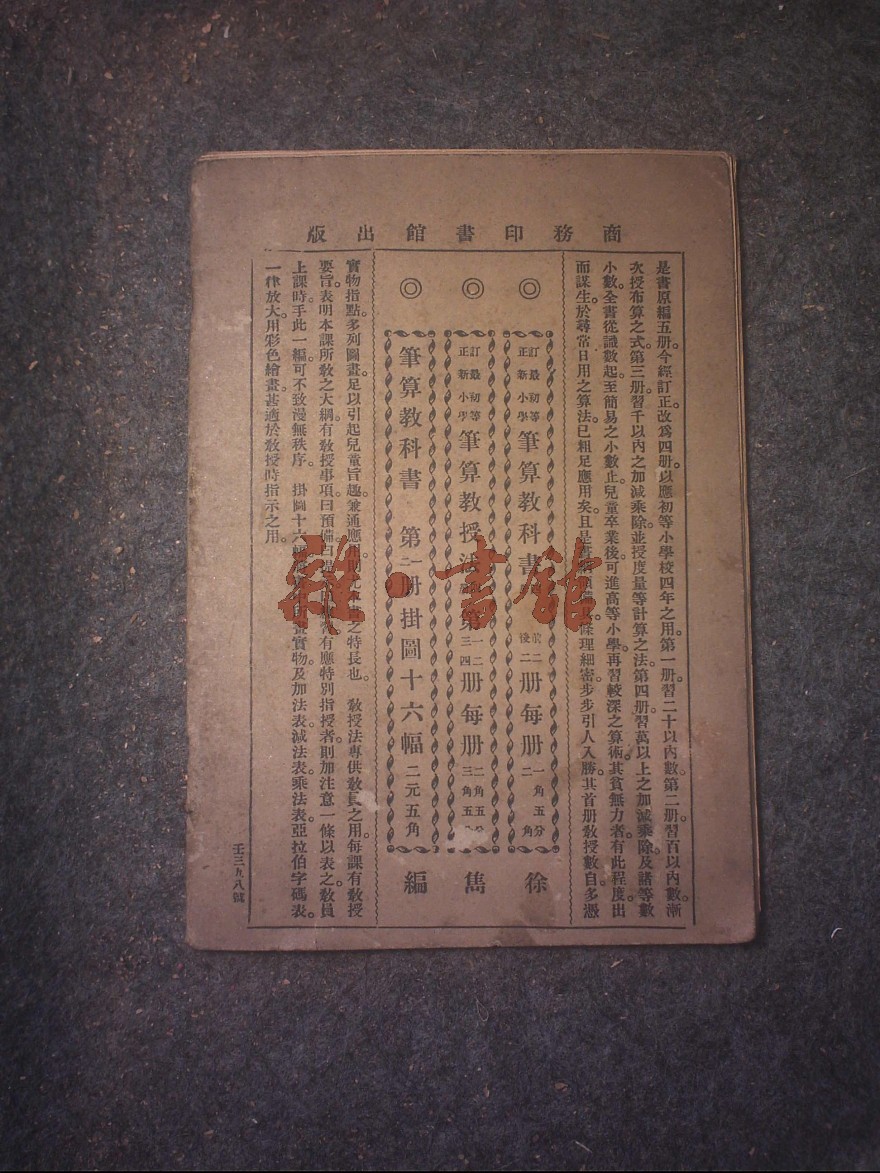 商務印書館出版
是書原編五册。今經訂正改爲四册。以應初等小學校四年之用。第一册。習二十以內數。第二册。習百以內數。漸
次授布算之式。第三册。習千以內之加減乘除。並授度量等計算之法。第四册。習萬以上之加減乘除。及諸等數
小數。全書從識數起。至簡易之小數止。兒童卒業後。可進高等小學。再習較深之算術。其貧無力者。有此程度。出
而謀生。於尋常日用之算法。已粗足應用矣。且是書 條理細密。步步引人入勝。其首册敎授數目。多憑
◎ 訂正 最新 初等小學 筆算教科書 前二後二 册每册 一角五分 二角
◎ 訂正 最新 初等小學 筆算教授法 第一二三四册每册 二角五分 三角五
◎ 筆算教科書 第一二册掛圖十六幅 二元五角
徐雋編
實物指點。多列圖畫。足以引起兒童旨趣。兼通應用。 之特長也。 敎授法專供敎員之用。每課有敎授
要旨。表明本課所敎之大綱。有敎授事項。曰預備。曰 有應特別指授者。則加注意一條以表之。敎員
上課時。手此一編。可不致漫無秩序。 掛圖十六幅 畫實物。及加法表。減法表。乘法表。亞拉伯字碼表。
一律放大。用彩色繪畫。甚適於敎授時指示之用。
壬三九八號
雜·書館